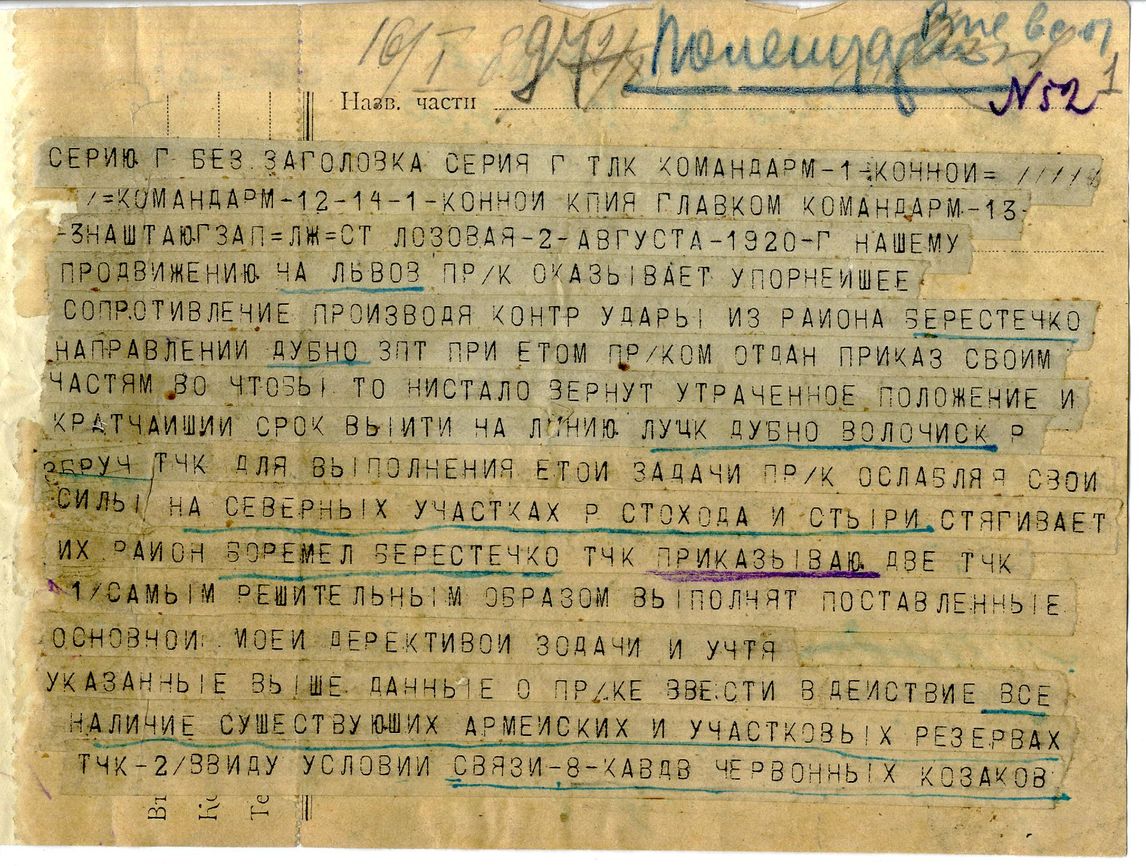 16/I
Назв. части
N52
1
СЕРИЮ Г БЕЗ ЗАГОЛОВКА СЕРИЯ Г ТЛК КОМАНДАРМ-1-КОННОИ= /////
/=КОМАНДАРМ-12-14-1-КОННОИ КПИЯ ГЛАВКОМ КОМАНДАРМ-13-
-3НАШТАЮГЗАП=ЛЖ=СТ ЛОЗОВАЯ-2-АВГУСТА-1920-Г НАШЕМУ
ПРОДВИЖЕНИЮ НА ЛЬВОВ ПР/К ОКАЗЫВАЕТ УПОРНЕИШЕЕ
СОПРОТИВЛЕНИЕ ПРОИЗВОДЯ КОНТР УДАРЫ ИЗ РАЙОНА БЕРЕСТЕЧКО
НАПРАВЛЕНИИ ДУБНО ЗПТ ПРИ ЕТОМ ПР/КОМ ОТДАН ПРИКАЗ СВОИМ
ЧАСТЯМ ВО ЧТОБЫ ТО НИСТАЛО ВЕРНУТ УТРАЧЕННОЕ ПОЛОЖЕНИЕ И
КРАТЧАИШИИ СРОК ВЫИТИ НА ЛИНИЮ ЛУЦК ДУБНО ВОЛОЧИСК Р
ЗБРУЧ ТЧК ДЛЯ ВЫПОЛНЕНИЯ ЕТОИ ЗАДАЧИ ПР/К ОСЛАБЛЯЯ СВОИ
СИЛЫ НА СЕВЕРНЫХ УЧАСТКАХ Р СТОХОДА И СТЫРИ СТЯГИВАЕТ
ИХ РАЙОН БОРЕМЕЛ БЕРЕСТЕЧКО ТЧК ПРИКАЗЫВАЮ ДВЕ ТЧК
1/САМЫМ РЕШИТЕЛЬНЫМ ОБРАЗОМ ВЫПОЛНЯТ ПОСТАВЛЕННЫЕ
ОСНОВНОИ МОЕИ ДЕРЕКТИВОИ ЗОДАЧИ И УЧТЯ
УКАЗАННЫЕ ВЫШЕ ДАННЫЕ О ПР/КЕ ВВЕСТИ В ДЕЙСТВИЕ ВСЕ
НАЛИЧИЕ СУШЕСТВУЮШИХ АРМЕИСКИХ И УЧАСТКОВЫХ РЕЗЕРВАХ
ТЧК-2/ВВИДУ УСЛОВИИ СВЯЗИ-8-КАВДВ ЧЕРВОННЫХ КОЗАКОВ